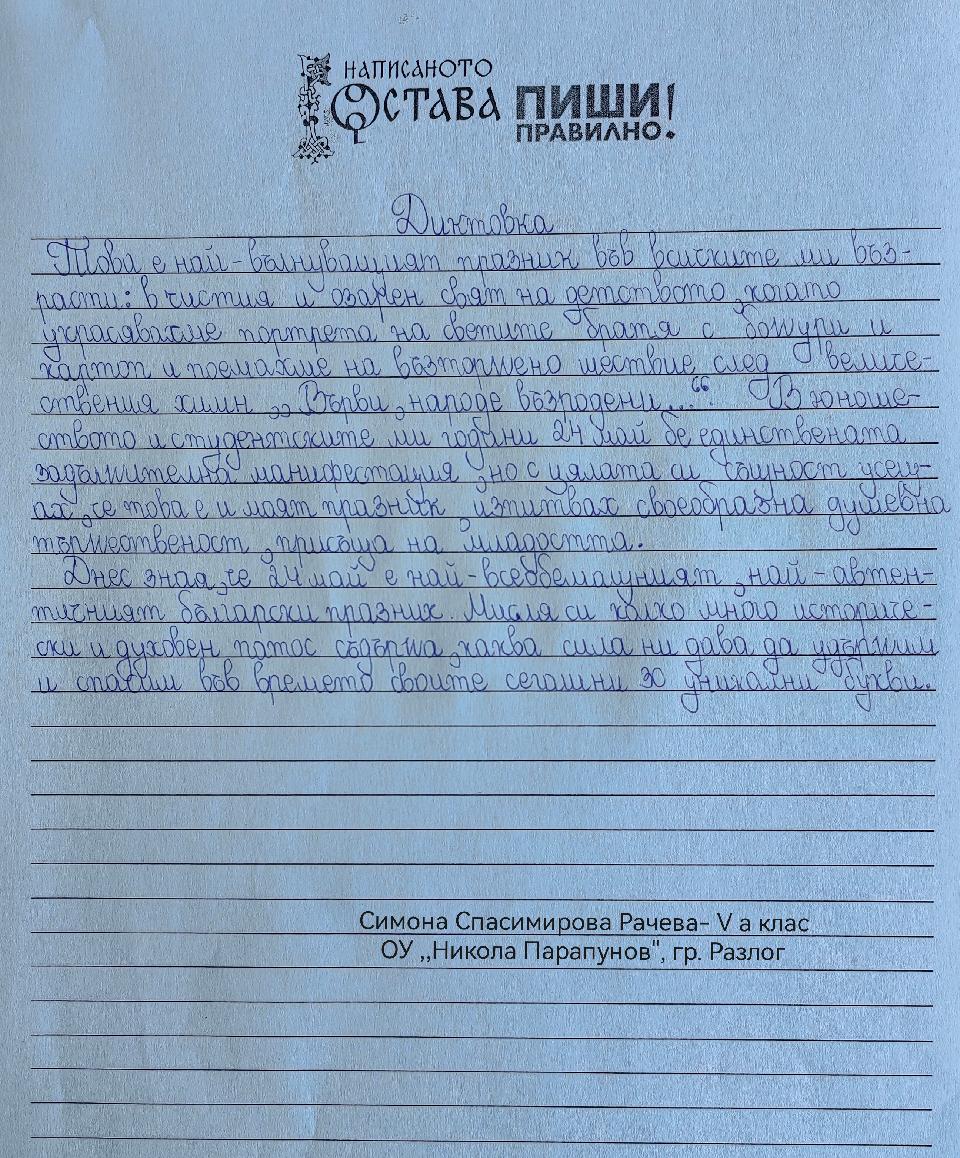 НАПИСАНОТО
ОСТАВА ПИШИ!
ПРАВИЛНО.
Диктовка
Това е най-вълнуващият празник във всиските ми въз-
расти: в чистия и озарен свят на детството, когато
украсявахме портрета на светите братя с божури и
картоп и поемахме на възторжено шествие след величе-
ствения химн „Върви, народе възродени..." В юноше-
ството и студентските ми години 24 май бе единствената
задължителна манифестация, но с цялата си същност усещ-
ах, че това е и моят празник, изпитвах своеобразна душевна
тържественост, присъща на младостта.
Днес зная, че 24 май е най-всеобемащният, най-автен-
тичният български празник. Мисля си колко много историче-
ски и духовен патос съдържа, каква сила ни дава да удържим
и спасим във времето своите сегашни 30 уникални букви.
Симона Спасимирова Рачева- V а клас
ОУ ,,Никола Парапунов", гр. Разлог